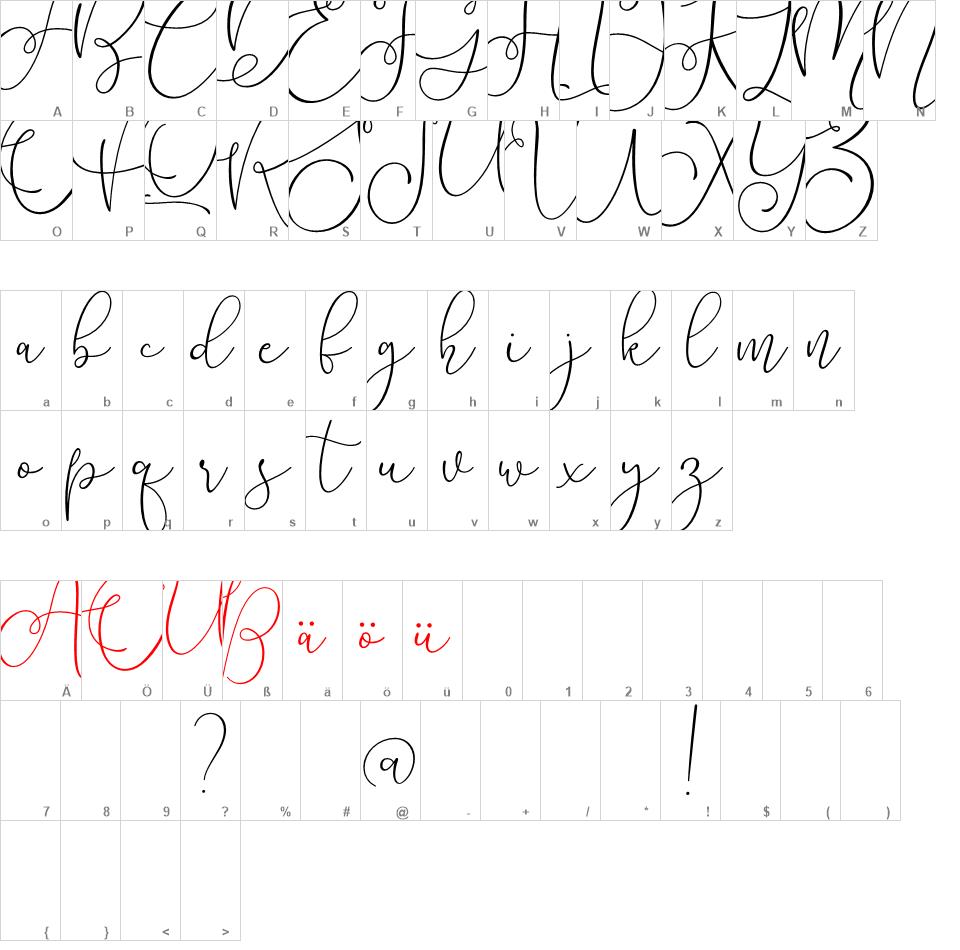 A B C D E F G H I J K L M N
A B C D E F G H I J K L M N
O P Q R S T U V W X Y Z
O P Q R S T U V W X Y Z
a b c d e f g h i j k l m n
a b c d e f g h i j k l m n
o p q r s t u v w x y z
o p q r s t u v w x y z
Ä Ö Ü ß ä ö ü
Ä Ö Ü ß ä ö ü 0 1 2 3 4 5 6
? @ !
7 8 9 ? % # @ - + / * ! $ ( )
{ } < >